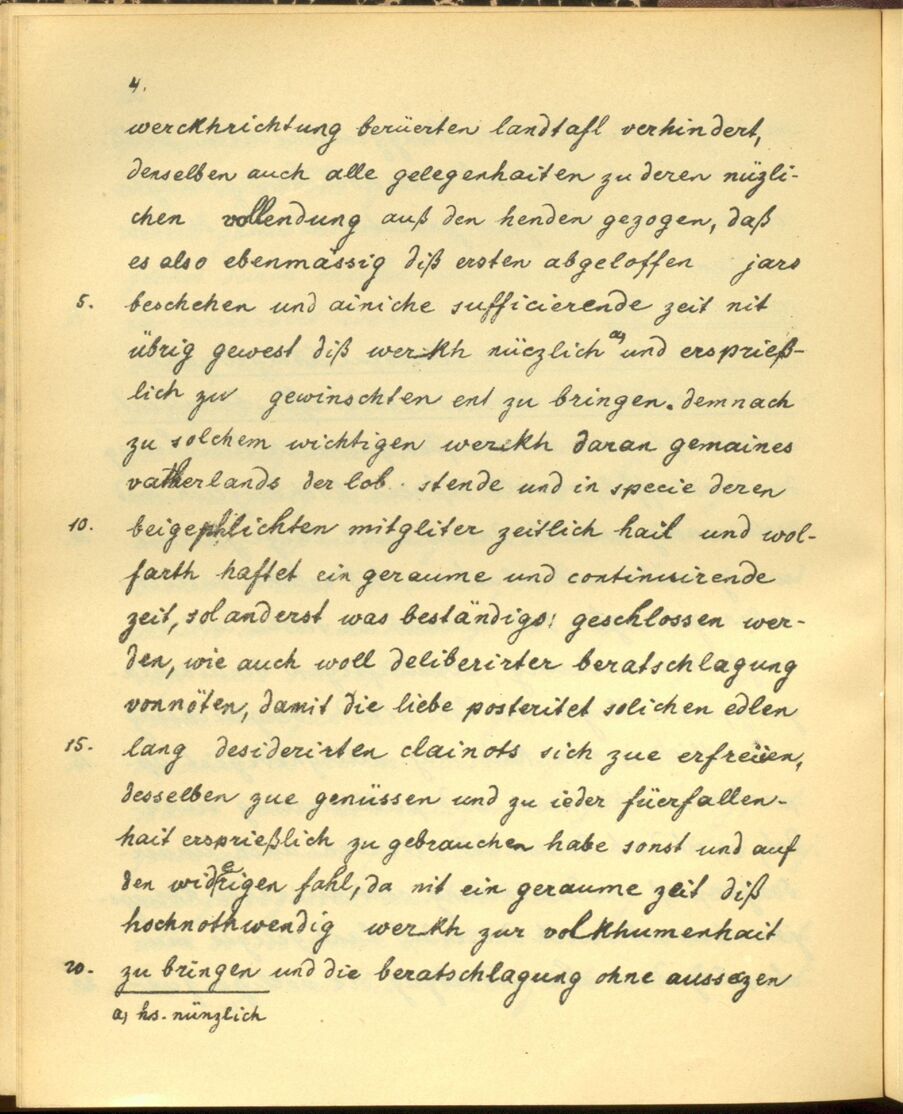 4.
werckhrichtung berüerten landtafl verhindert,
denselben auch alle gelegenhaiten zu deren nüzli-
chen vollendung auß den henden gezogen, daß
es also ebenmässig diß ersten abgeloffen jars
5. beschehen und ainiche sufficierende zeit nit
übrig gewest diß werckh nüczlich a) und ersprieß-
lich zu gewinschten ent zu bringen. demnach
zu solchem wichtigen werckh daran gemaines
vatherlands der lob. stende und in specie deren
10. beigephlichten mitgliter zeitlich hail und wol-
farth haftet ein geraume und continuirende
zeit, sol anderst was beständigs geschlossen wer-
den, wie auch woll deliberirter beratschlagung
vonnöten, damit die liebe posteritet solichen edlen
15. lang desiderirten clainots sich zue erfreüen,
desselben zue genüssen und zu ieder füerfallen-
hait ersprießlich zu gebrauchen habe sonst und auf
den widerigen fahl, da nit ein geraume zeit diß
hochnothwendig werckh zur volkhumenhait
20. zu bringen und die beratschlagung ohne aussezen
a) hs. nünzlich